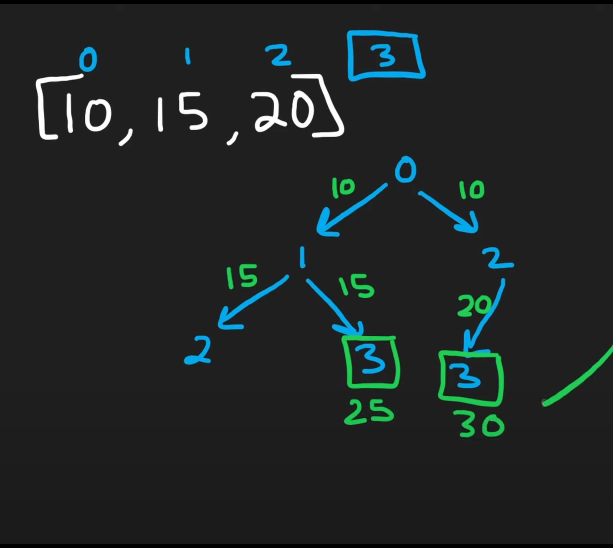 0 1 2 3
[10, 15, 20]
0
10 10
1 2
15 15 20
2 3 3
25 30